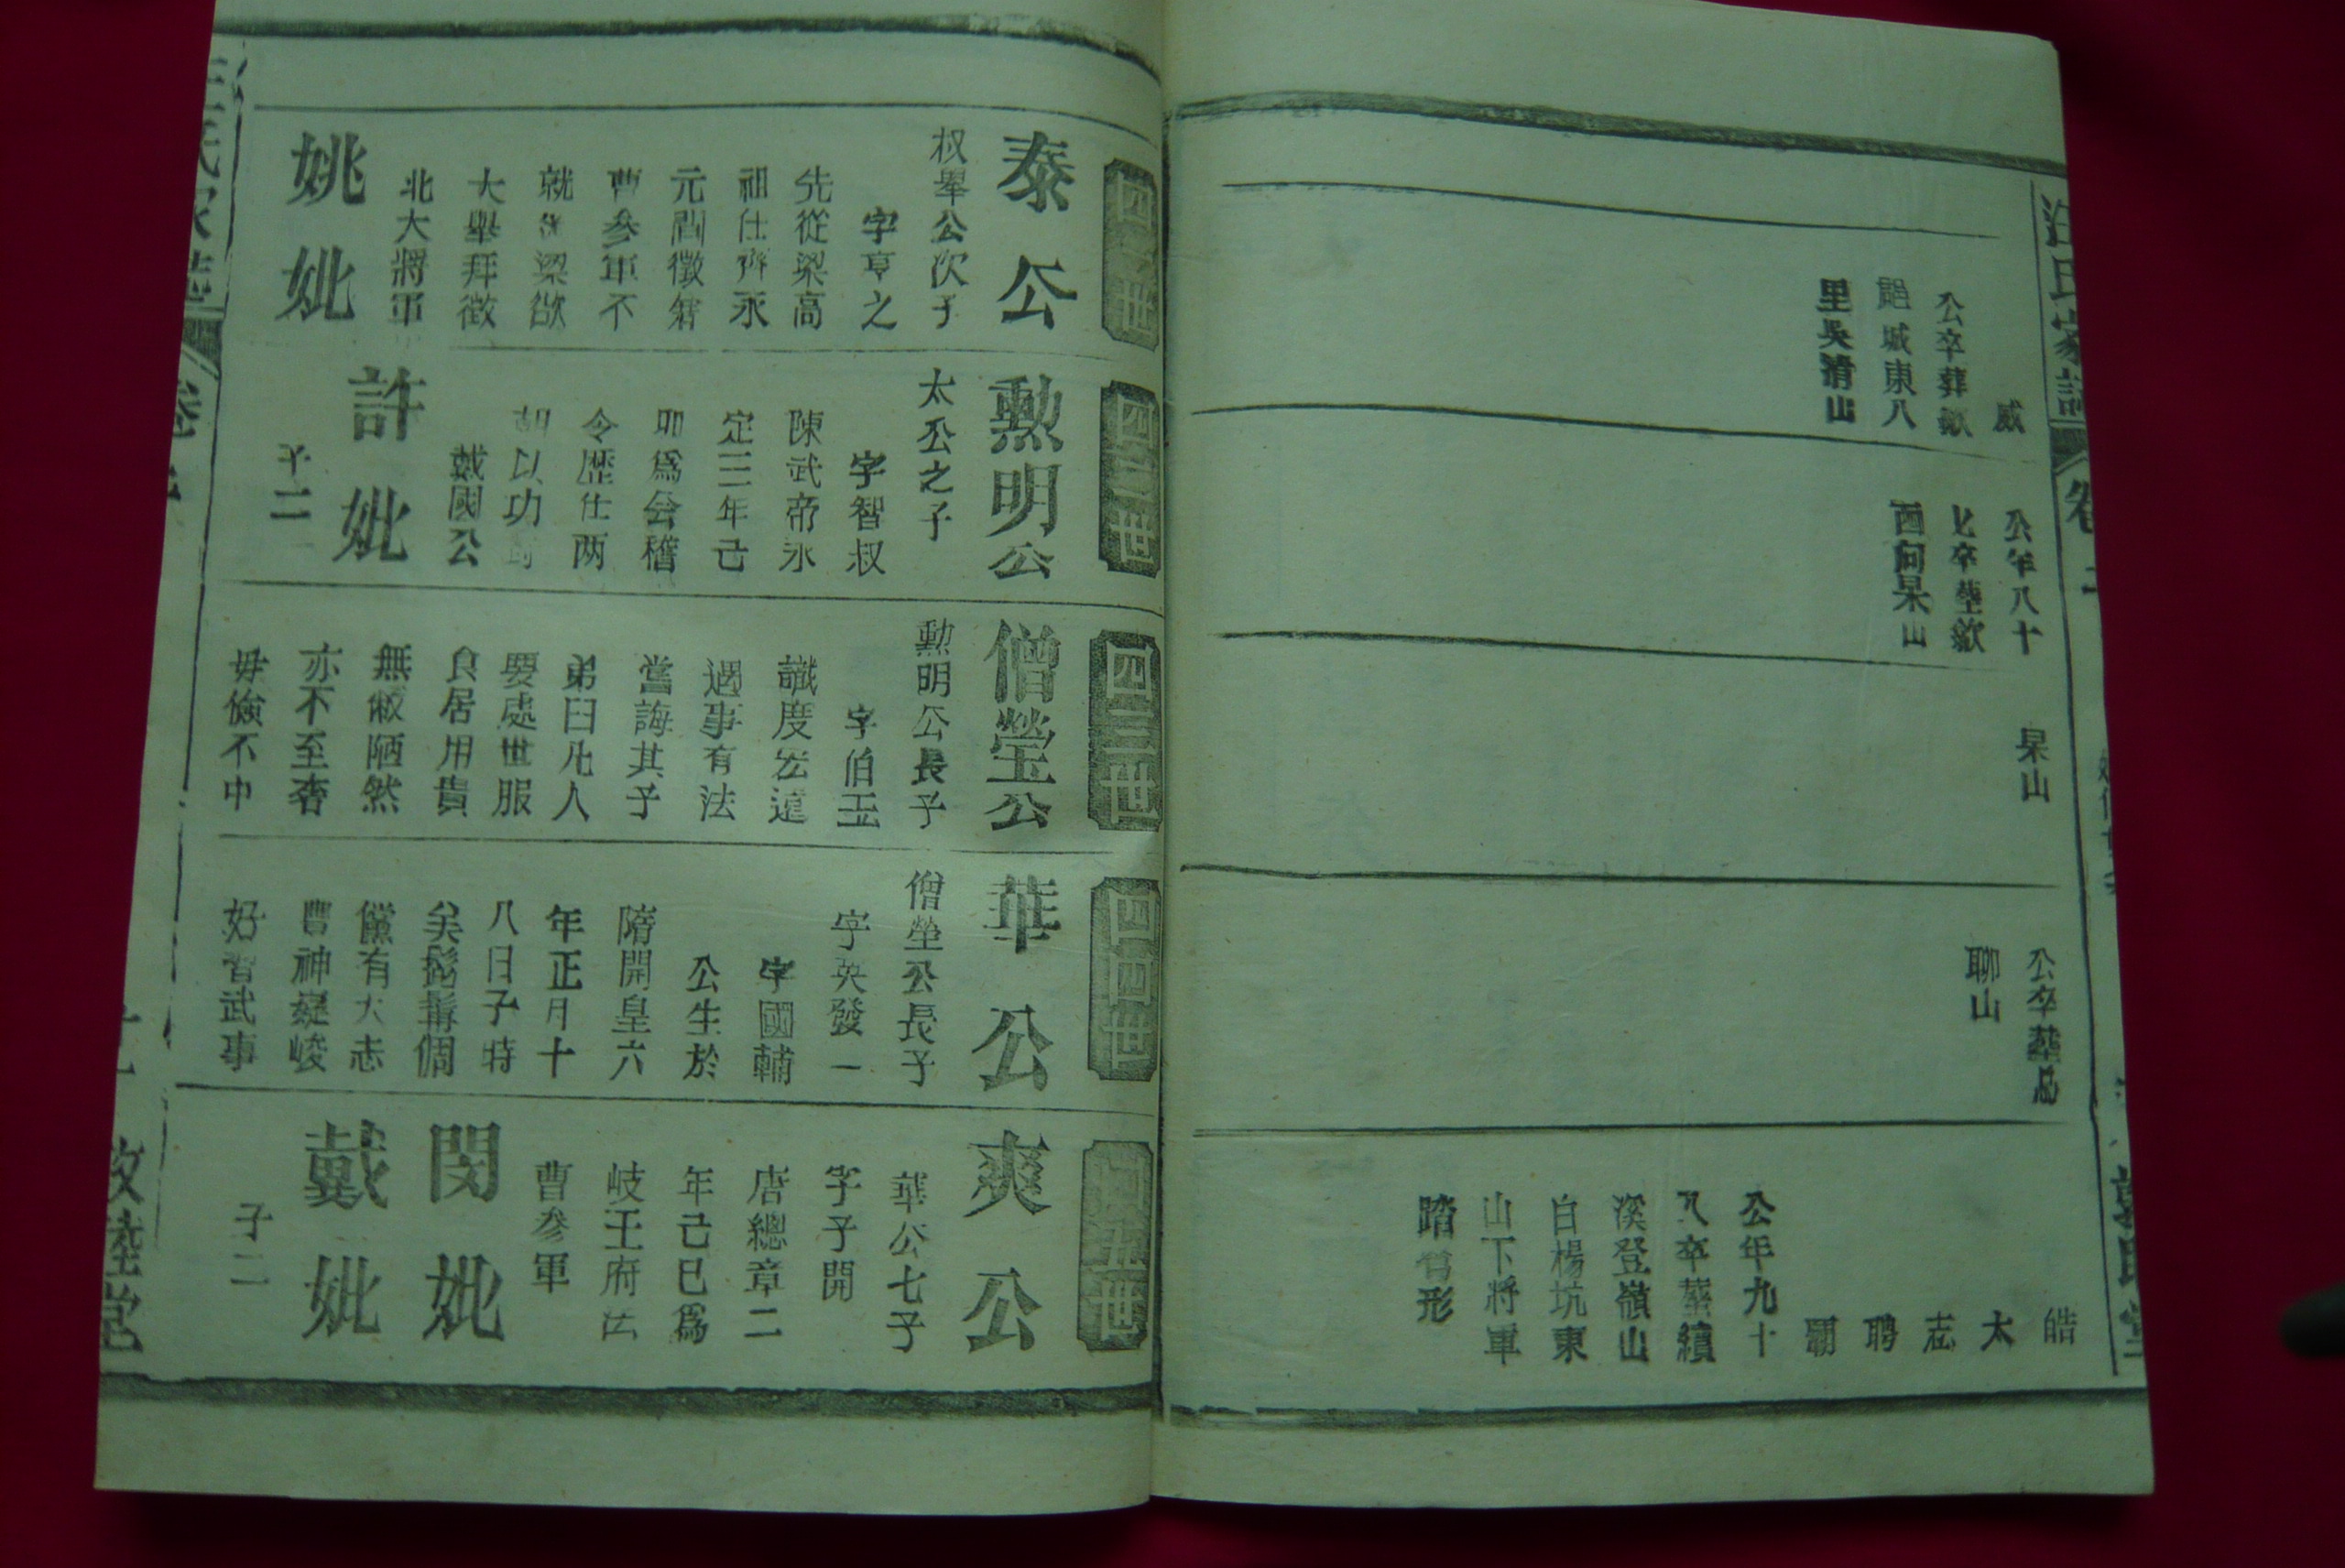 汪氏家譜
威
公卒葬歙
邑城東八
里吳清山
公年八十
七卒塟歙
西向杲山
杲山
公卒葬
聊山
皓
太
志
聘
公年九十
八卒葬績
溪登嶺山
白楊坑東
山下將軍
踏
形
四一世
泰公
叔舉公次子
字章之
先從梁高
祖仕齊永
元間徵
曹參軍不
就後梁欲
大舉拜徵
北大將軍
姚妣
四二世
勲明公
太公之子
字智叔
陳武帝永
定三年己
卯爲會稽
令歴仕两
朝以功封
戴國公
許妣
子二
四三世
僧瑩公
勲明公長子
字伯玉
識度宏遠
遇事有法
嘗誨其子
弟曰凡人
要處世服
食居用貴
無敝陋然
亦不至奢
毋儉不中
四四世
華公
僧瑩公長子
字英發一
字國輔
公生於
隋開皇六
年正月十
八日子時
矣髫髯倜
儻有大志
豐神嶷峻
好習武事
四五世
爽公
華公七子
字子開
唐總章二
年己巳爲
岐王府法
曹參軍
閔妣
戴妣
子二
汪氏家譜
卷
敦睦堂